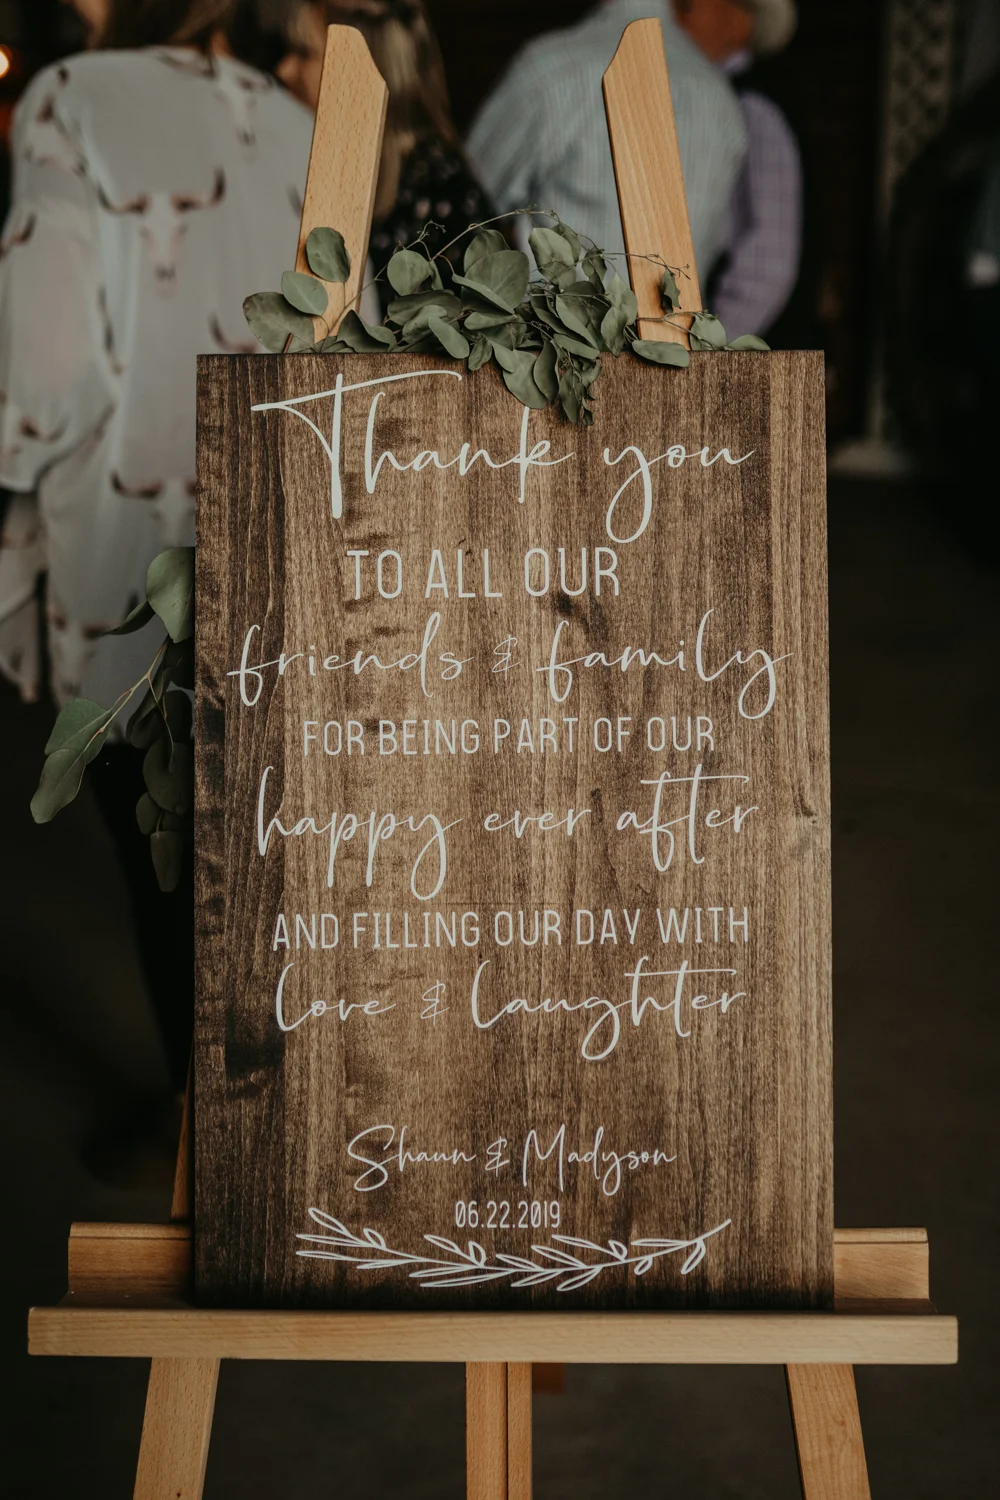 Thank you
TO ALL OUR
friends & family
FOR BEING PART OF OUR
happy ever after
AND FILLING OUR DAY WITH
love & laughter
Shaun & Madyson
06.22.2019